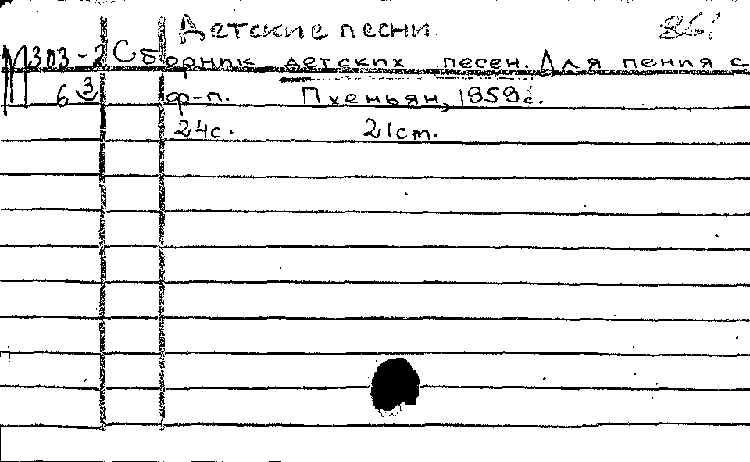 Детские песни
М 303-2 Сборник детских песен. Для пения с
6 3 ф-п. Пхеньян, 1959г.
24с. 21cm.